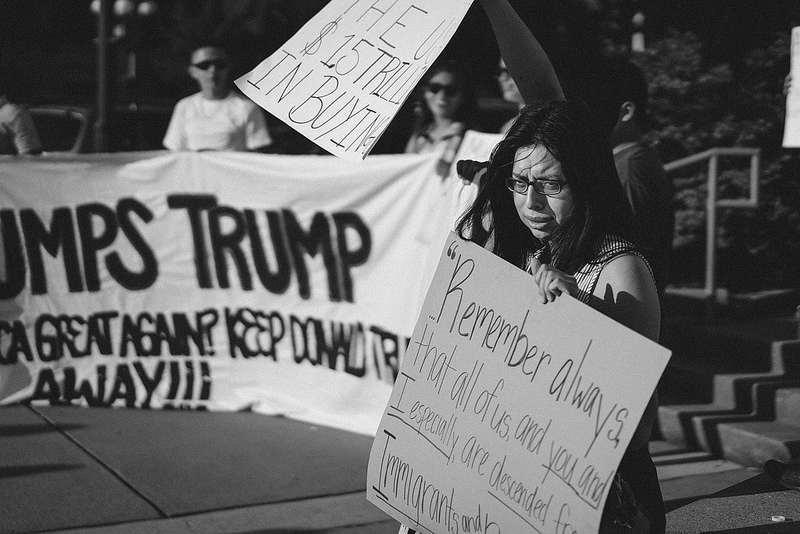 THE U
$15 TRILL
IN BUYING
UMPS TRUMP
CA GREAT AGAIN? KEEP DONALD TR
AWAY!!!
"Remember always,
that all of us, and you and
I especially, are descended fr
Immigrants and